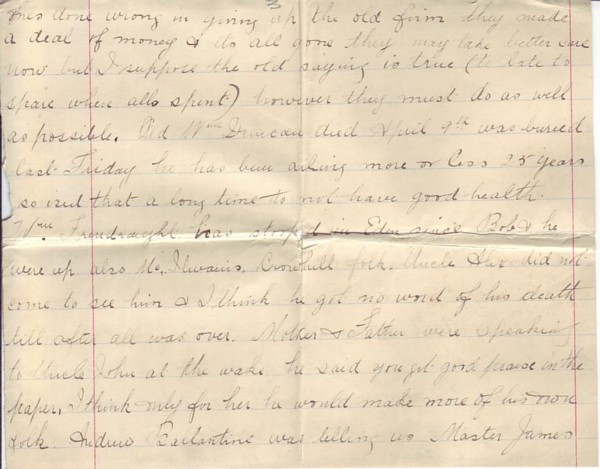 has done wrong in giving up the old firm they made
a deal of money & its all gone they may take better care
now but I suppose the old saying is true (to late to
spare when alls spent) however they must do as well
as possible. Old Wm Duncan died April 9th was buried
last Friday he has been ailing more or less 25 years
so isnt that a long time to not have good health.
Wm. has stopped in since Bob & he
were up also Mc Ilwains. Crowhill folk. Uncle did not
come to see him & I think he got no word of his death
till after all was over. Mother & Father were speaking
to Uncle John at the wake he said you got good praise in the
paper. I think only for her he would make more of his own
folk. Andrew Ballantine was telling us Master James